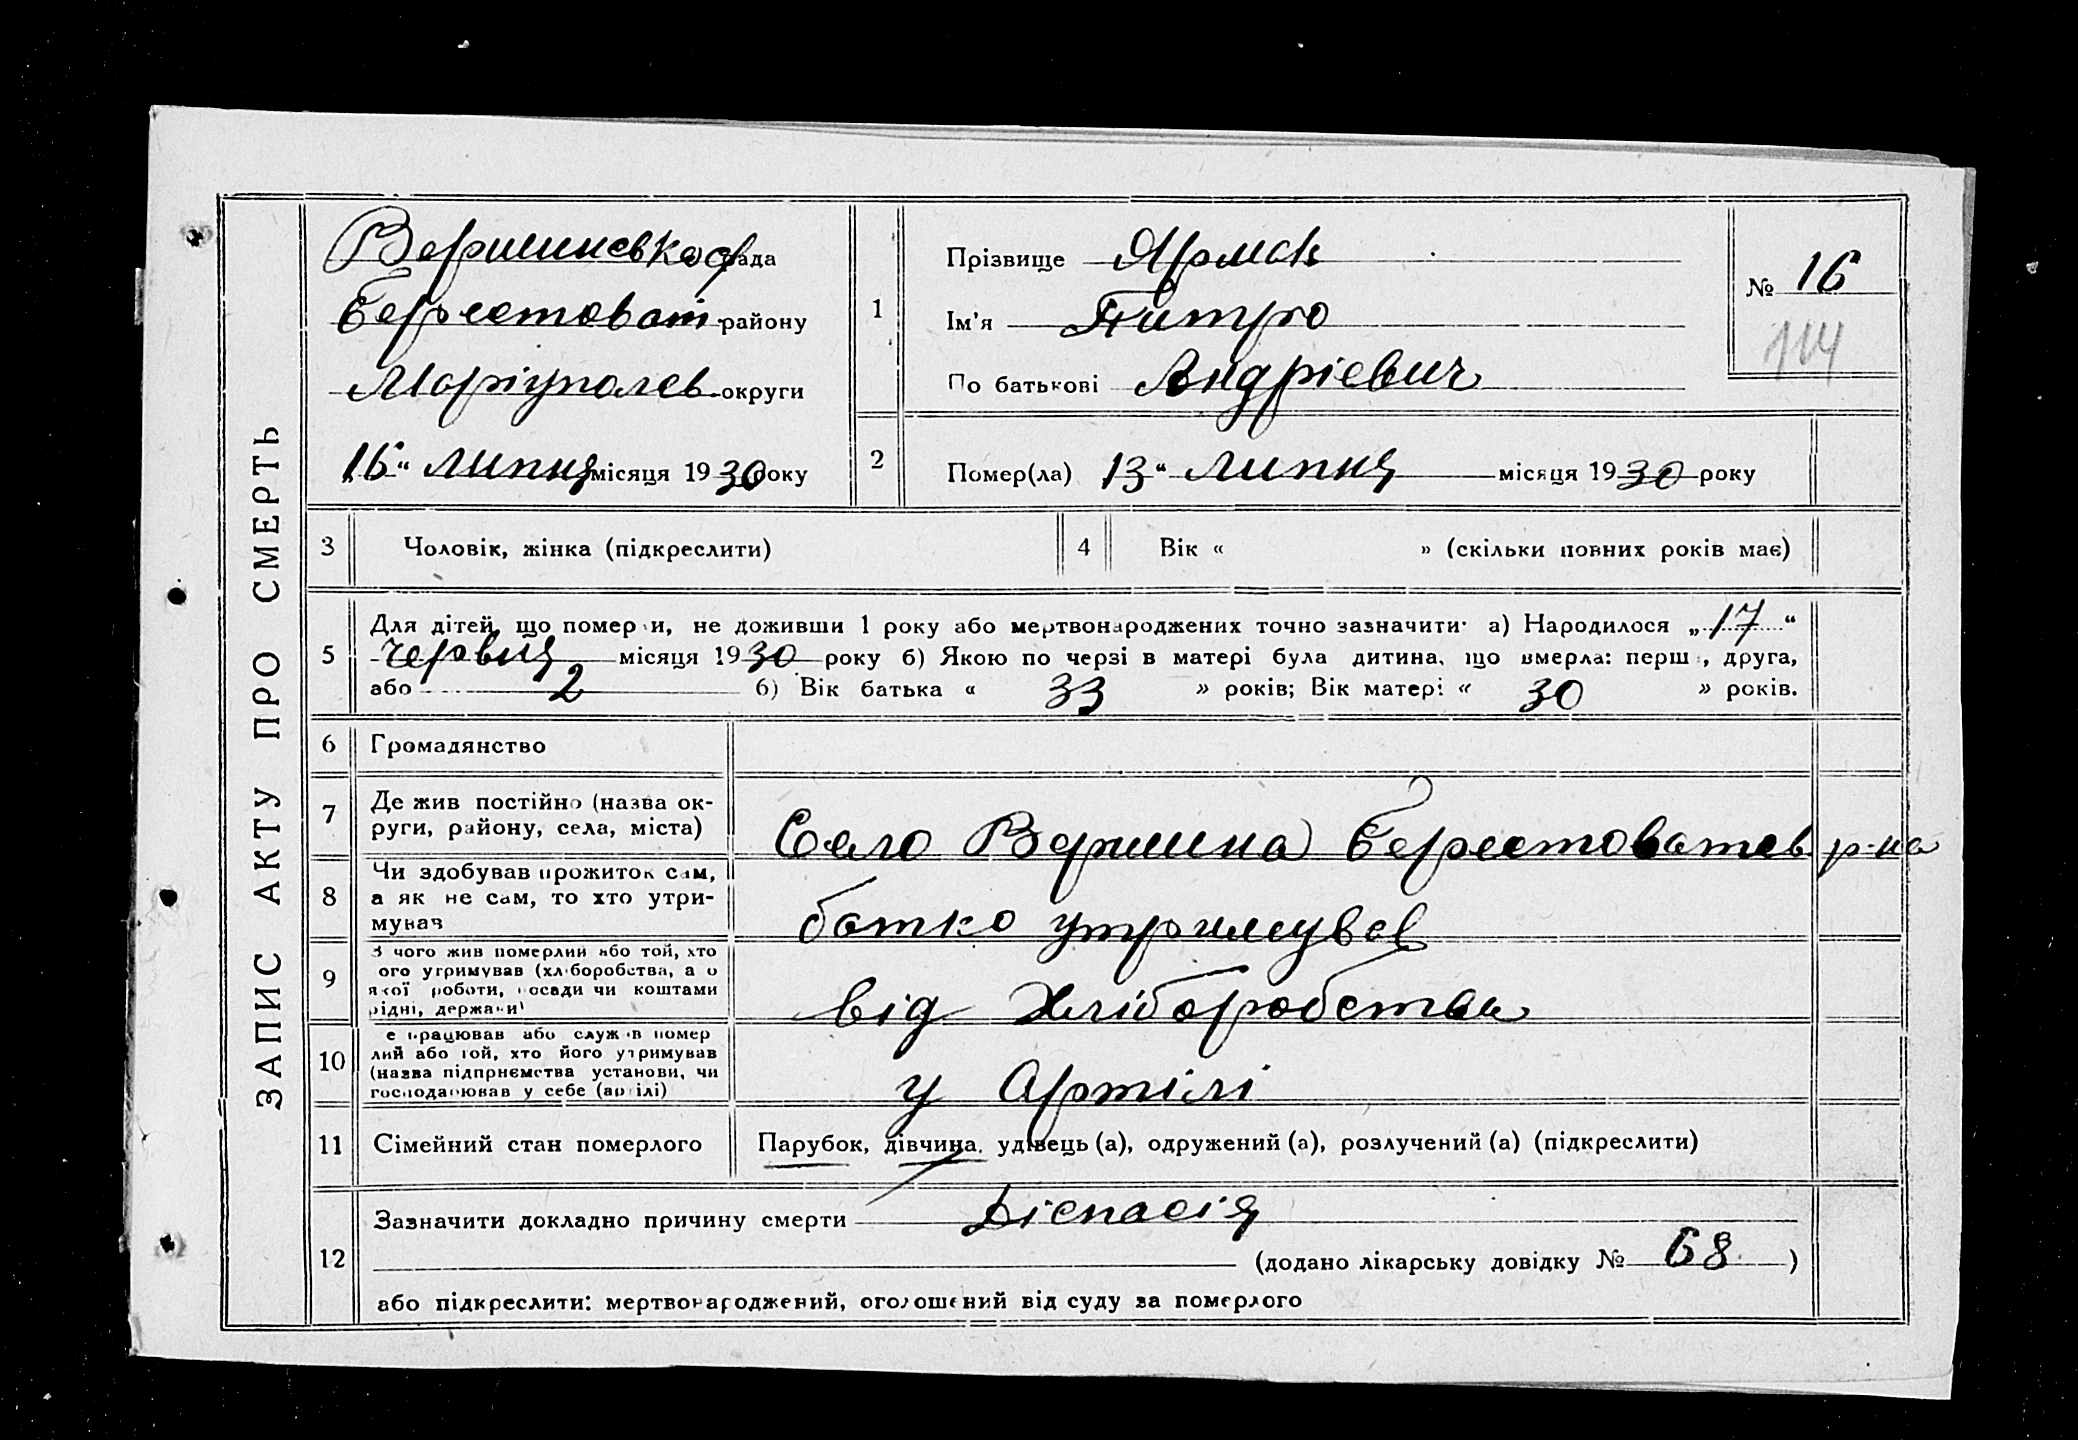 ЗАПИС АКТУ ПРО СМЕРТЬ
Вершинська рада
Берестоват. району
Маріупольв. округи
„16“ липня місяця 1930 року
1
Прізвище Ярмак
Ім'я Дмитро
По батькові Андрієвич
№ 16
114
2
Помер(ла) 13“ липня місяця 1930 року
3 Чоловік, жінка (підкреслити)
4 Вік « » (скільки повних років має)
5 Для дітей що померли, не доживши 1 року або мертвонароджених точно зазначити: а) Народилося „17“
червня місяця 1930 року б) Якою по черзі в матері була дитина, що вмерла: перша, друга,
або 2 б) Вік батька « 33 » років; Вік матері « 30 » років.
6 Громадянство
7 Де жив постійно (назва ок-
руги, району, села, міста)
Село Вершина Берестоватсв. р-на
8 Чи здобував прожиток сам,
а як не сам, то хто утри-
мував
батко утримував
9 З чого жив померлий або той, хто
ого утримував (хліборобства, а о
якої роботи, посади чи коштами
рідні, держави)
від Хліборобства
10 е працював або служив помер
лий або той, хто його утримував
(назва підприємства установи, чи
господарював у себе (артілі)
у Артілі
11 Сімейний стан померлого
Парубок, дівчина, удівець (а), одружений (а), розлучений (а) (підкреслити)
12 Зазначити докладно причину смерти Діспасія
(додано лікарську довідку № 68 )
або підкреслити: мертвонароджений, оголошений від суду за померлого